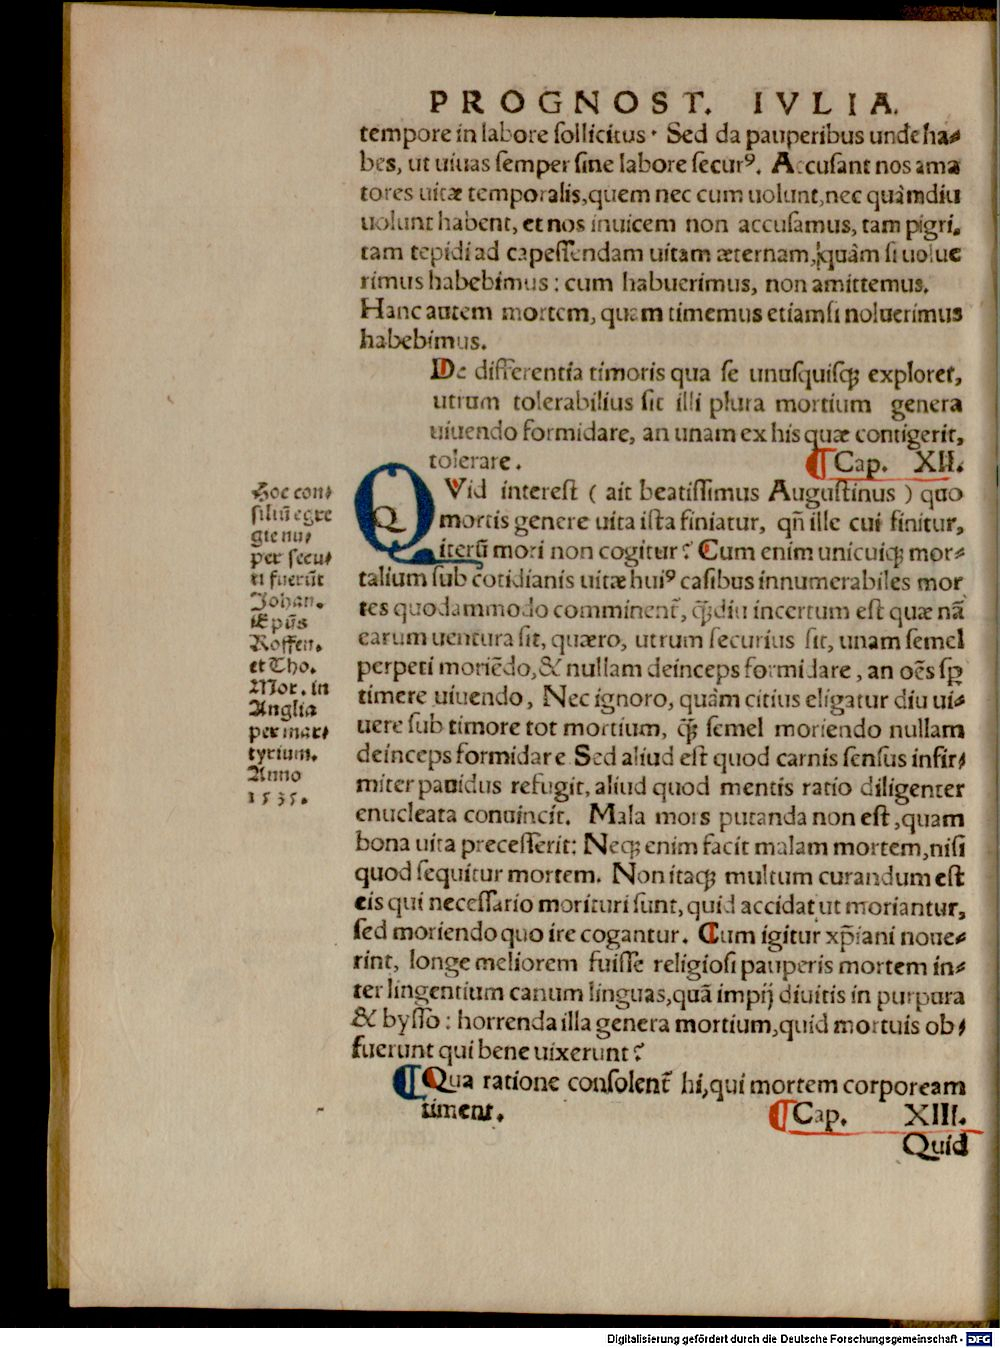 PROGNOST. IVLIA.
tempore in labore ſollicitus· Sed da pauperibus unde ha-
bes, ut uiuas ſemper ſine labore ſecurꝰ. Accuſant nos ama
tores uitæ temporalis,quem nec cum uolunt,nec quàmdiu
uolunt habent, et nos inuicem non accuſamus, tam pigri,
tam tepidi ad capeſſendam uitam æternam, quàm ſi uolue
rimus habebimus : cum habuerimus, non amittemus.
Hanc autem mortem, quam timemus etiamſi noluerimus
habebimus.
De differentia timoris qua ſe unuſquiſqꝫ exploret,
utrum tolerabilius ſit illi plura mortium genera
uiuendo formidare, an unam ex his quæ contigerit,
tolerare. ¶Cap. XII.
QVid intereſt ( ait beatiſſimus Auguſtinus ) quo
mortis genere uita iſta finiatur, qñ ille cui finitur,
iterũ mori non cogitur? Cum enim unicuiqꝫ mor-
talium ſub cotidianis uitæ huiꝰ caſibus innumerabiles mor
tes quodammodo comminent̃, q̃ꝫdiu incertum eſt quæ nã
earum uentura ſit, quæro, utrum ſecurius ſit, unam ſemel
perpeti moriẽdo,& nullam deinceps formidare, an oẽs ſꝑ
timere uiuendo, Nec ignoro, quàm citius eligatur diu ui-
uere ſub timore tot mortium, q̃ꝫ ſemel moriendo nullam
deinceps formidare Sed aliud eſt quod carnis ſenſus infir-
miter pauidus refugit, aliud quod mentis ratio diligenter
enucleata conuincit. Mala mors putanda non eſt,quam
bona uita preceſſerit: Neqꝫ enim facit malam mortem,niſi
quod ſequitur mortem. Non itaqꝫ multum curandum eſt
eis qui neceſſario morituri ſunt, quid accidat ut moriantur,
ſed moriendo quo ire cogantur. Cum igitur xp̃iani noue-
rint, longe meliorem fuiſſe religioſi pauperis mortem in-
ter lingentium canum linguas,quã impij diuitis in purpura
& byſſo : horrenda illa genera mortium,quid mortuis ob-
fuerunt qui bene uixerunt?
¶Qua ratione conſolent̃ hi,qui mortem corpoream
timent. ¶Cap. XIII.
Quid
Hoc con-
ſiliũ egre
gie nu-
per ſecu-
ti fuerũt
Johan.
Ep̃us
Roffen.
et Tho.
Mor. in
Anglia
per mar-
tyrium.
Anno
1535.
Digitalisierung gefördert durch die Deutsche Forschungsgemeinschaft - DFG